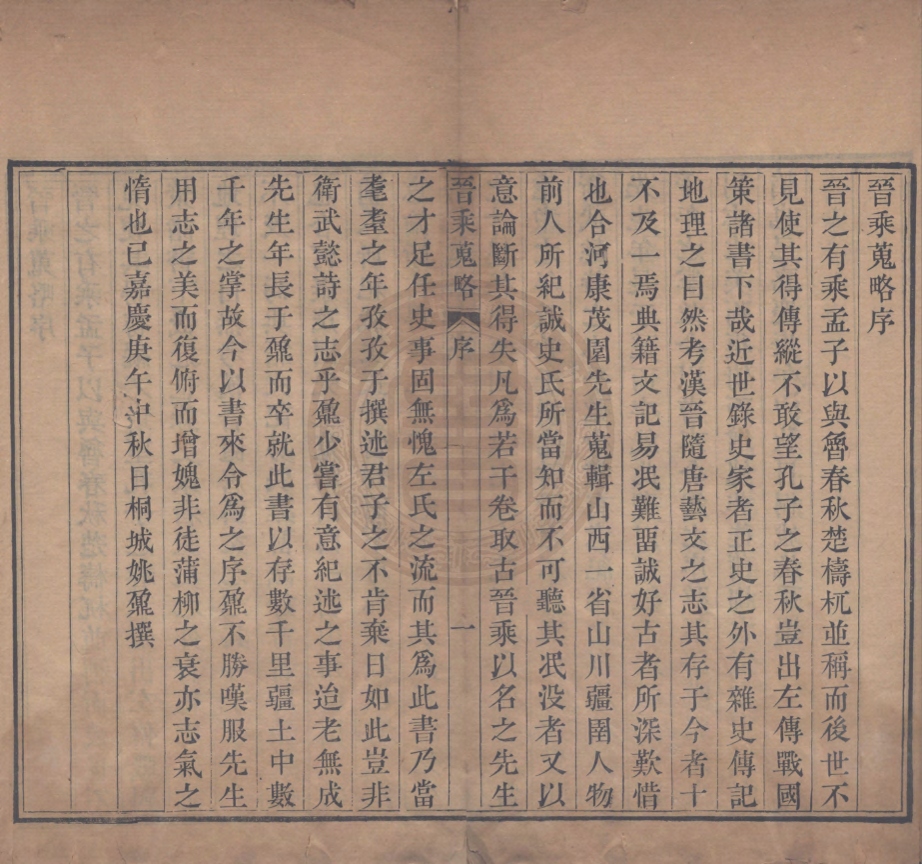 晉乘蒐略序
晉之有乘孟子以與魯春秋楚檮杌並稱而後世不
見使其得傳縱不敢望孔子之春秋豈出左傳戰國
策諸書下哉近世錄史家者正史之外有雜史傳記
地理之目然考漢晉隨唐藝文之志其存于今者十
不及一焉典籍文記易泯難畱誠好古者所深歎惜
也合河康茂園先生蒐輯山西一省山川疆圉人物
前人所紀誠史氏所當知而不可聽其泯没者又以
意論斷其得失凡爲若干卷取古晉乘以名之先生
晉乘蒐略 序 一
之才足任史事固無愧左氏之流而其爲此書乃當
耄耋之年孜孜于撰述君子之不肯棄日如此豈非
衛武懿詩之志乎鼐少嘗有意紀述之事迨老無成
先生年長于鼐而卒就此書以存數千里疆土中數
千年之掌故今以書來令爲之序鼐不勝嘆服先生
用志之美而復俯而增媿非徒蒲柳之衰亦志氣之
惰也已嘉慶庚午中秋日桐城姚鼐撰